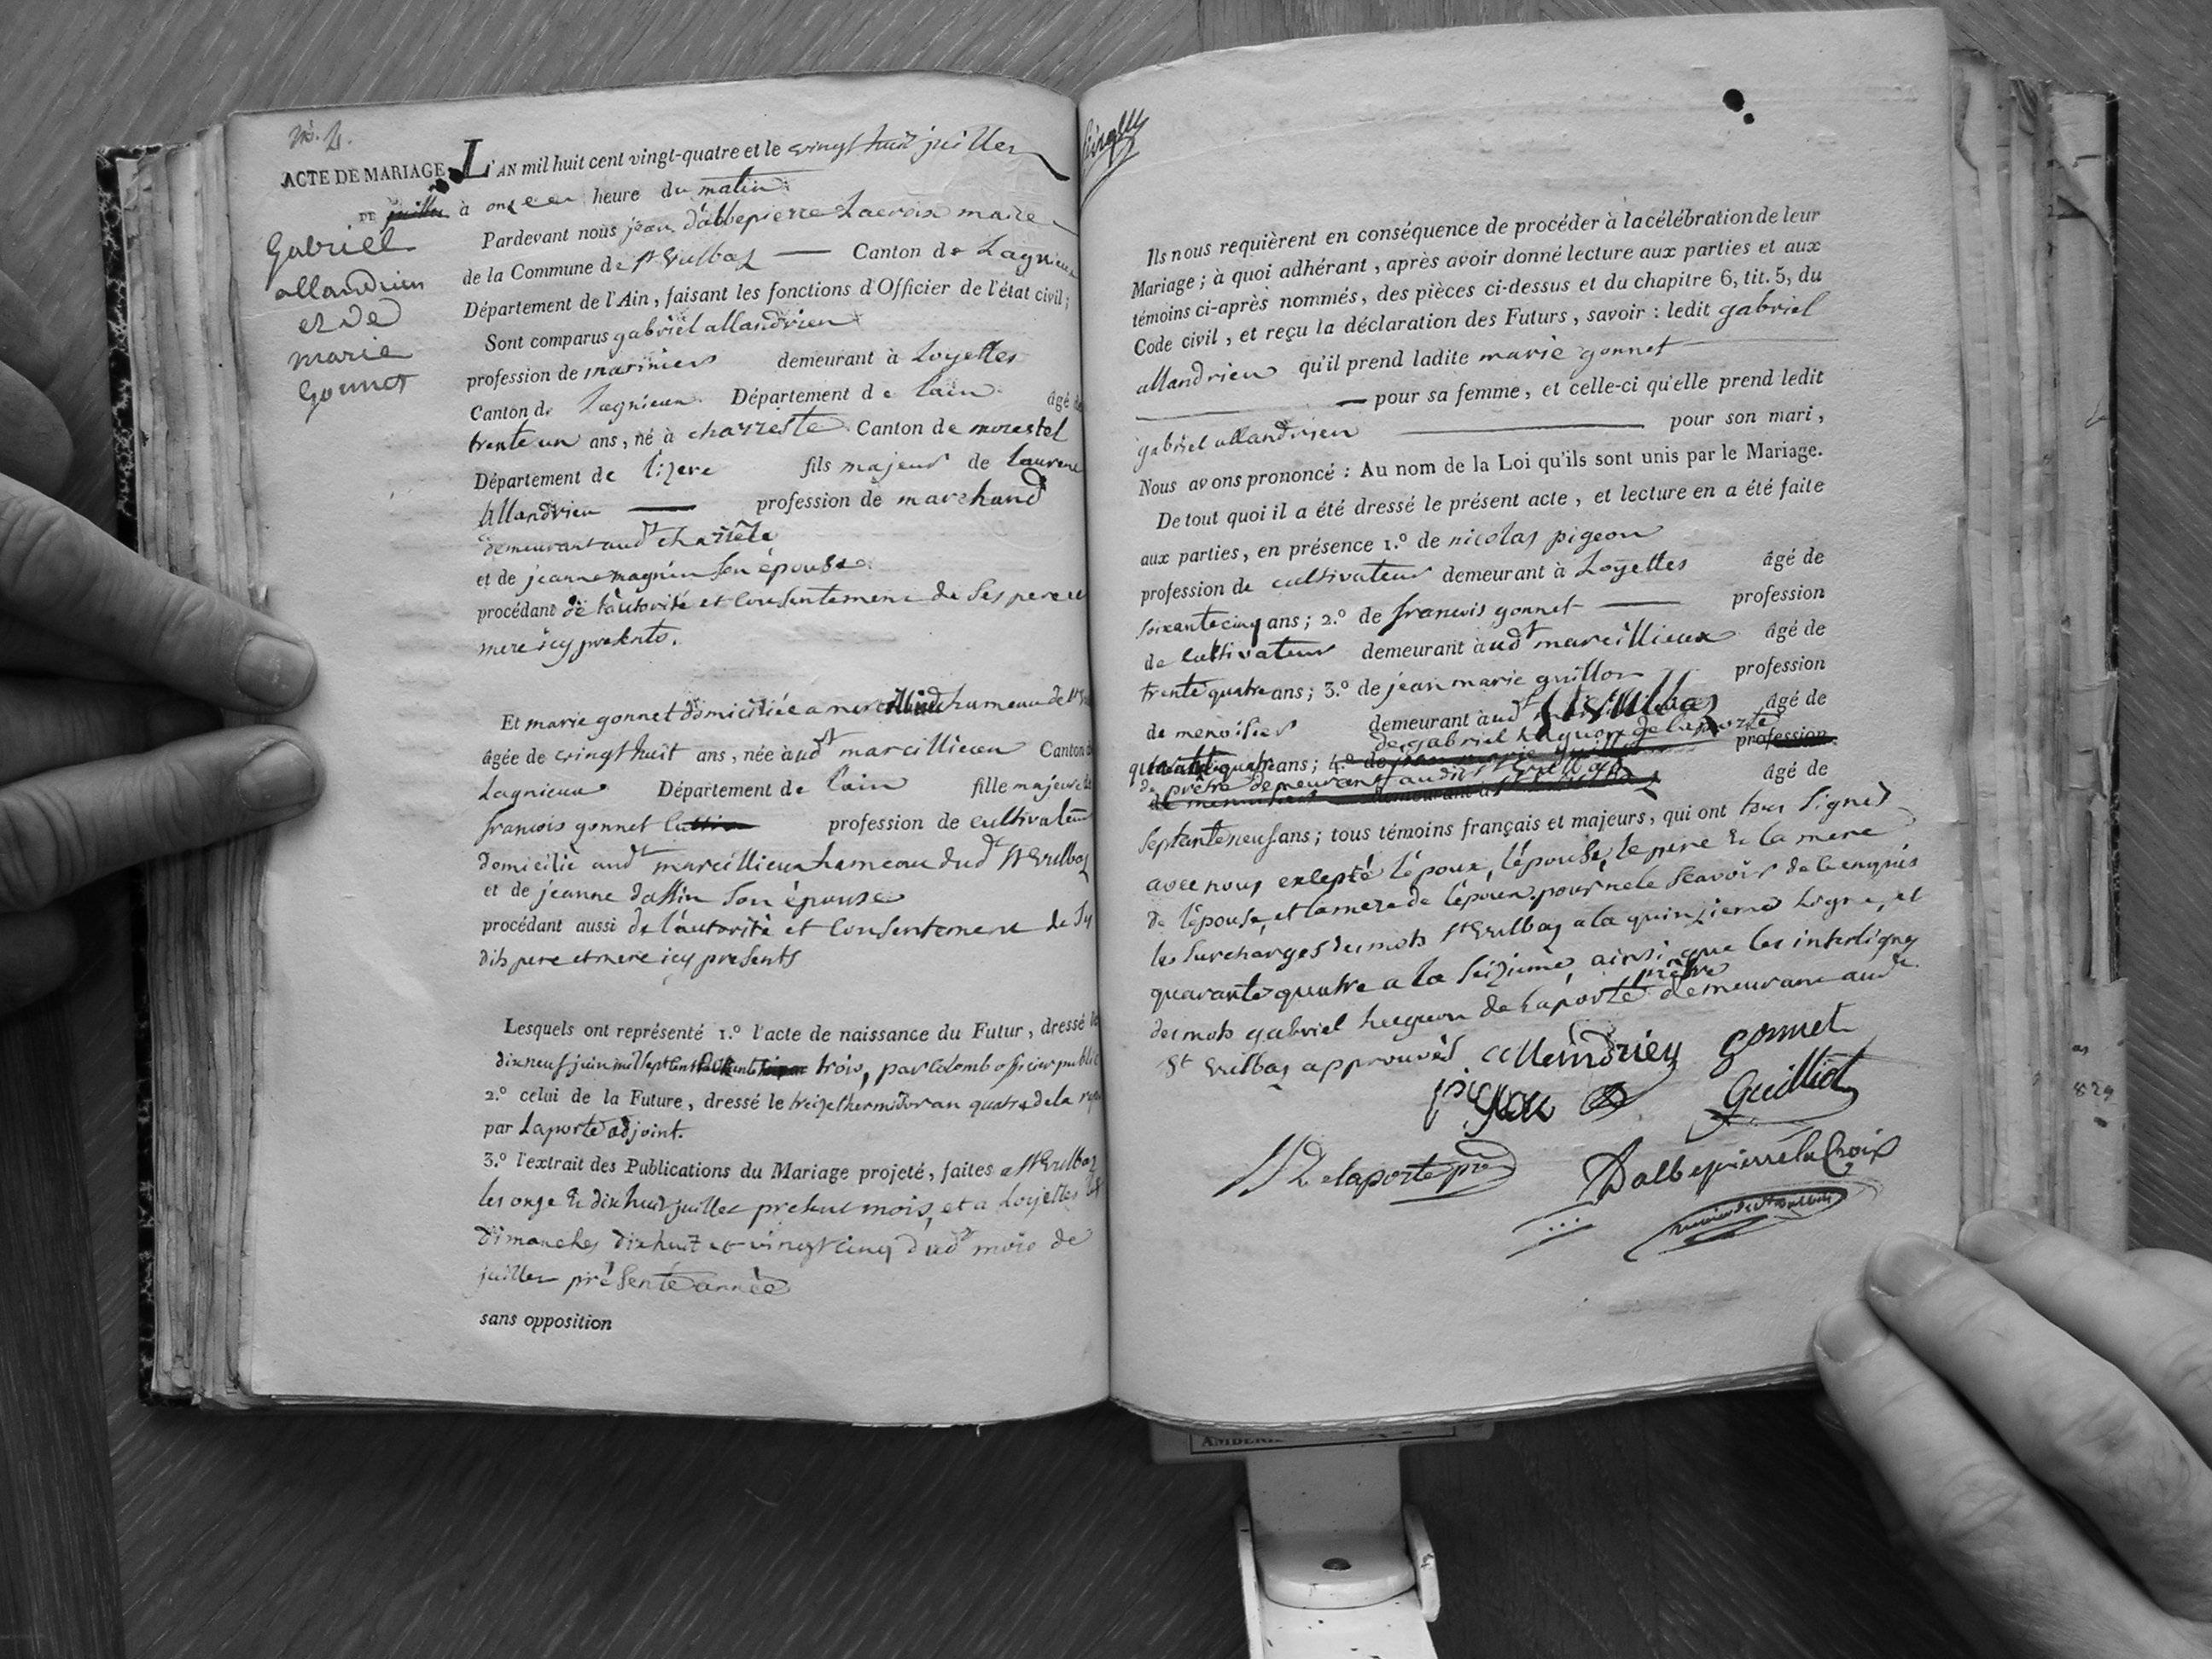 N.° 4.
ACTE DE MARIAGE
DE juillet
Gabriel
allandrieu
et de
marie
Gonnet
L'AN mil huit cent vingt-quatre et le vingt huit juillet
à onze heure du matin
Pardevant nous jean d'albepierre Lacroix maire
de la Commune de St Vulbaz — Canton de Lagnieu
Département de l'Ain, faisant les fonctions d'Officier de l'état civil;
Sont comparus gabriel allandrieu
profession de marinier demeurant à Loyettes
Canton de Lagnieu Département de lain âgé de
trente un ans, né à charrette Canton de morestel
Département de lizere fils majeur de laurent
allandrieu — profession de marchand
demeurant audt charrete
et de jeanne magnin son épouse
procédant de lautorité et consentement de ses pere et
mere icy presents.
Et marie gonnet domiciliée a marcillieu hameau de St
âgée de vingt huit ans, née à audt marcillieu Canton de
Lagnieu Département de lain fille majeure de
francois gonnet profession de cultivateur
domicilié audt marcillieu hameau dudt St Vulbaz
et de jeanne dassin son épouse
procédant aussi de l'autorité et consentement de Sy
dits pere et mere icy presents
Lesquels ont représenté 1.° l'acte de naissance du Futur, dressé le
dix neuf juin mil sept cent trois, par Colomb officier public
2.° celui de la Future, dressé le treize thermidor an quatre de la
par Laporte adjoint.
3.° l'extrait des Publications du Mariage projeté, faites a St Vulbaz
les onze & dix huit juillet present mois, et a Loyettes les
dimanches dix huit et vingt cinq dudt mois de
juillet présente année
sans opposition
Ils nous requièrent en conséquence de procéder à la célébration de leur
Mariage; à quoi adhérant, après avoir donné lecture aux parties et aux
témoins ci-après nommés, des pièces ci-dessus et du chapitre 6, tit. 5, du
Code civil, et reçu la déclaration des Futurs, savoir: ledit gabriel
allandrieu qu'il prend ladite marie gonnet
— pour sa femme, et celle-ci qu'elle prend ledit
gabriel allandrieu — pour son mari,
Nous avons prononcé: Au nom de la Loi qu'ils sont unis par le Mariage.
De tout quoi il a été dressé le présent acte, et lecture en a été faite
aux parties, en présence 1.° de nicolas pigeon
profession de cultivateur demeurant à Loyettes âgé de
soixante cinq ans; 2.° de francois gonnet — profession
de cultivateur demeurant à audt marcillieux âgé de
trente quatre ans; 3.° de jean marie guillot profession
de menuisier demeurant à audt St Vulbaz âgé de
de gabriel huguon de laporte
quarante quatre ans; 4.° de profession
de prêtre demeurant audit St Vulbaz
âgé de
septante neuf ans; tous témoins français et majeurs, qui ont tous signés
avec nous exlepté lépoux, lépouse, le pere & la mere
de lépouse, et la mere de lépoux pour ne le scavoir de ce enquis
les surcharges des mots St Vulbaz a la quinzieme Ligne, et
quarante quatre a la seizieme, ainsi que les interligne
prêtre
des mots gabriel huguon de Laporte demeurant audt
St Vulbaz approuvés allandrieu gonnet
pigeon Guilliot
Delaporte pre Dalbepierre laCroix